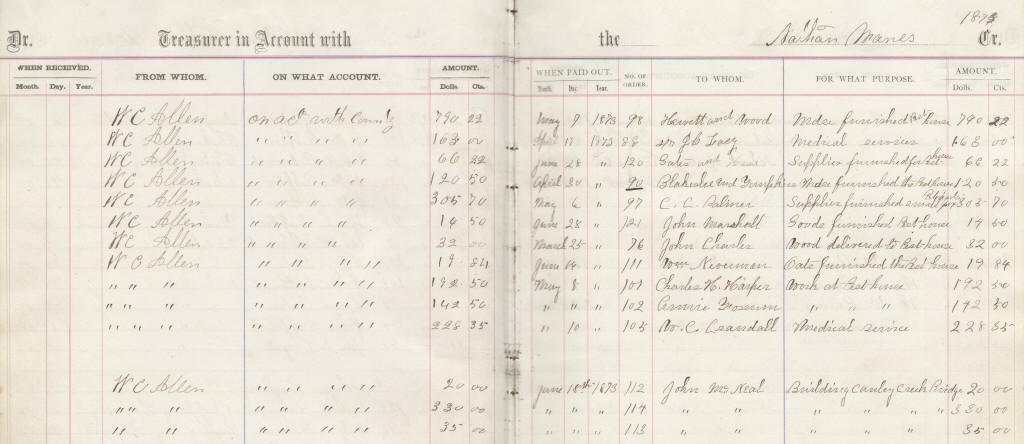 1873
Dr. Treasurer in Account with the Nathan Manes Cr.
WHEN RECEIVED. FROM WHOM. ON WHAT ACCOUNT. AMOUNT. WHEN PAID OUT. NO. OF ORDER. TO WHOM. FOR WHAT PURPOSE. AMOUNT.
Month. Day. Year. Dolls. Cts. Month. Day. Year. Dolls. Cts.
W C Allen on act with County 790 22 May 9 1873 98 Hewett and Wood Mdse furnished Pest house 790 22
W C Allen " " " " 163 00 18 1873 88 J C Tracy Medical services 163 00
W C Allen " " " " 66 22 June 28 " 120 Gates and Supplies furnished for Pest house 66 22
W C Allen " " " " 120 50 April 30 " 90 Blakeslee and Tompkins Mdse furnished to Pest house 120 50
W C Allen " " " " 305 70 May 6 " 97 C. C. Palmer Supplies furnished small pox Patients 305 70
W C Allen " " " " 14 50 June 28 " 121 John Marshall Goods furnished Pest house 14 50
W C Allen " " " " 32 00 March 25 " 76 John Charles Wood delivered to Pest house 32 00
W C Allen " " " " 19 84 June 14 " 111 Wm Newman Oats furnished the Pest house 19 84
" " " " " " " 192 50 May 8 " 101 Charles H. Harper Work at Pest house 192 50
" " " " " " " 142 50 " " " 102 Annie " " 142 50
" " " " " " " 228 35 " 10 " 105 W. C Crandall Medical service 228 35
W C Allen " " " " 20 00 June 18th 1873 112 John McNeal Building Caney Creek Bridge 20 00
" " " " " " " 330 00 " " " 114 " " " " " " 330 00
" " " " " " " 35 00 " " " 113 " " " " " 35 00